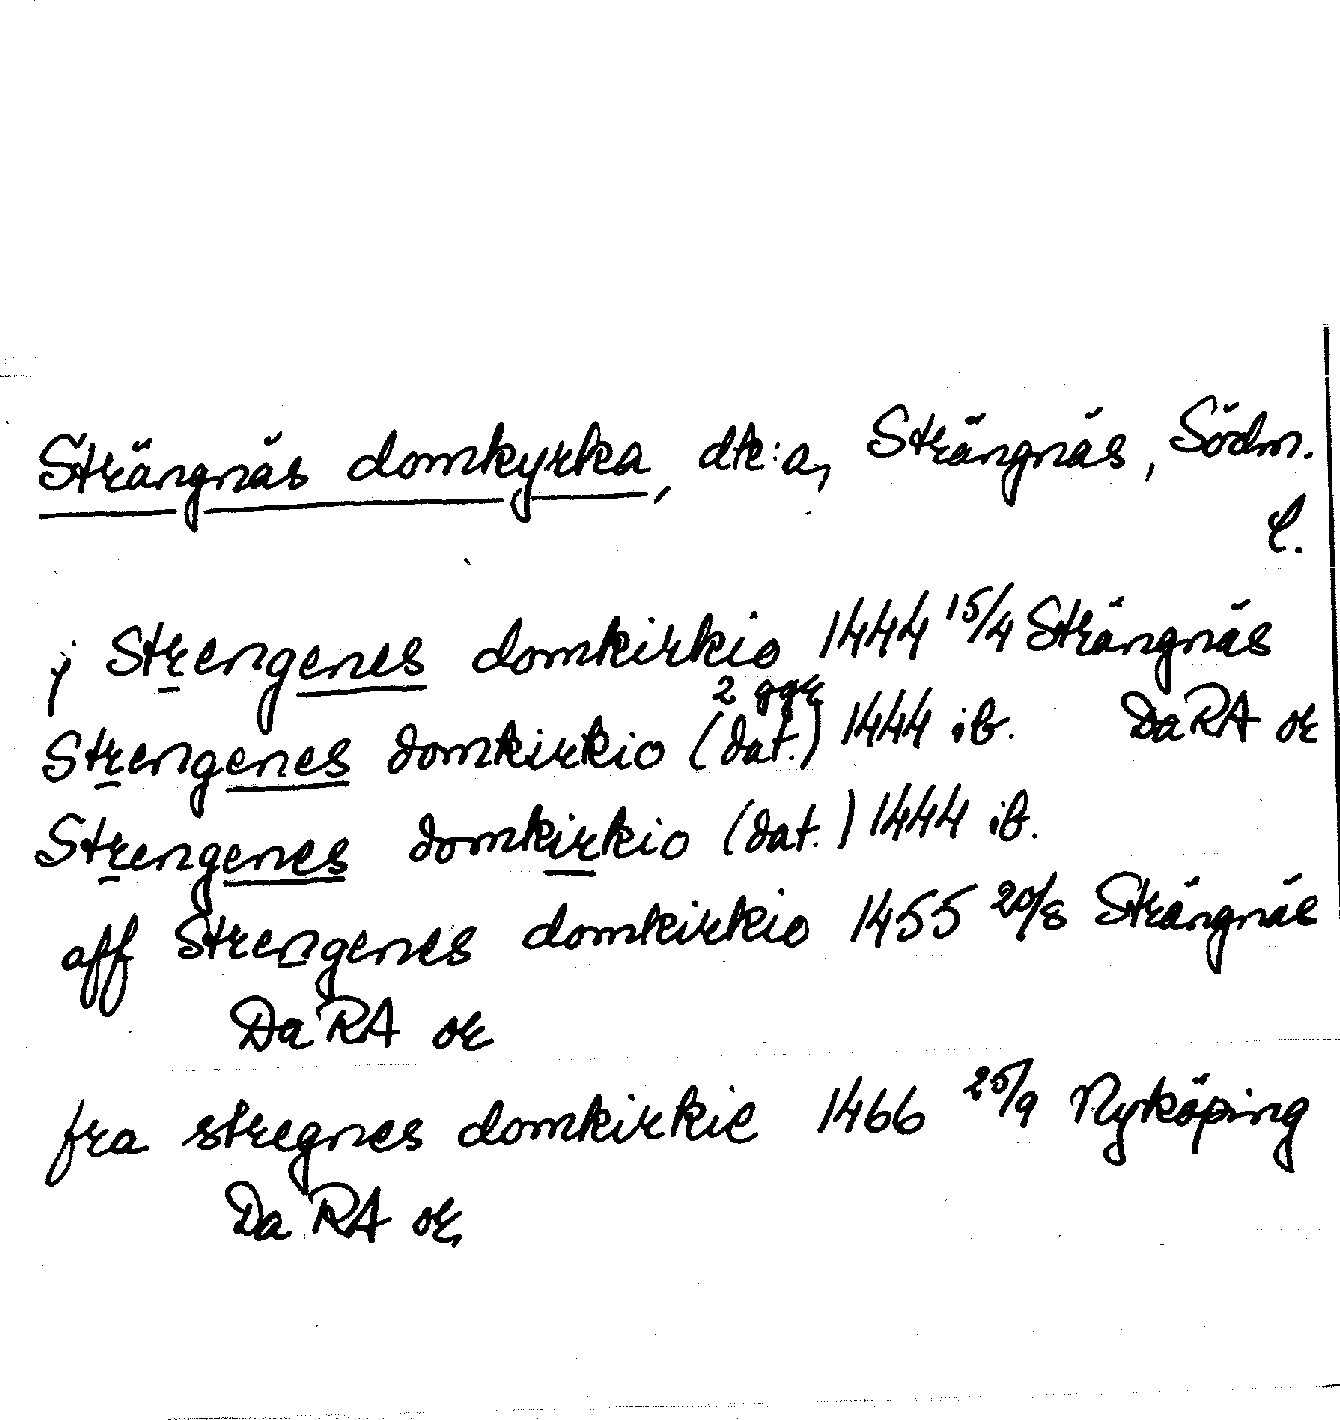 Strängnäs domkyrka, dk:a, Strängnäs, Södm.
l.
j Strengenes domkirkio 1444 15/4 Strängnäs
2 ggr
Strengenes domkirkio (dat.) 1444 ib. DaRA or
Strengenes domkirkio (dat.) 1444 ib.
aff Strengenes domkirkio 1455 20/8 Strängnäs
DaRA or
fra stregnes domkirkie 1466 25/9 Nyköping
DaRA or,